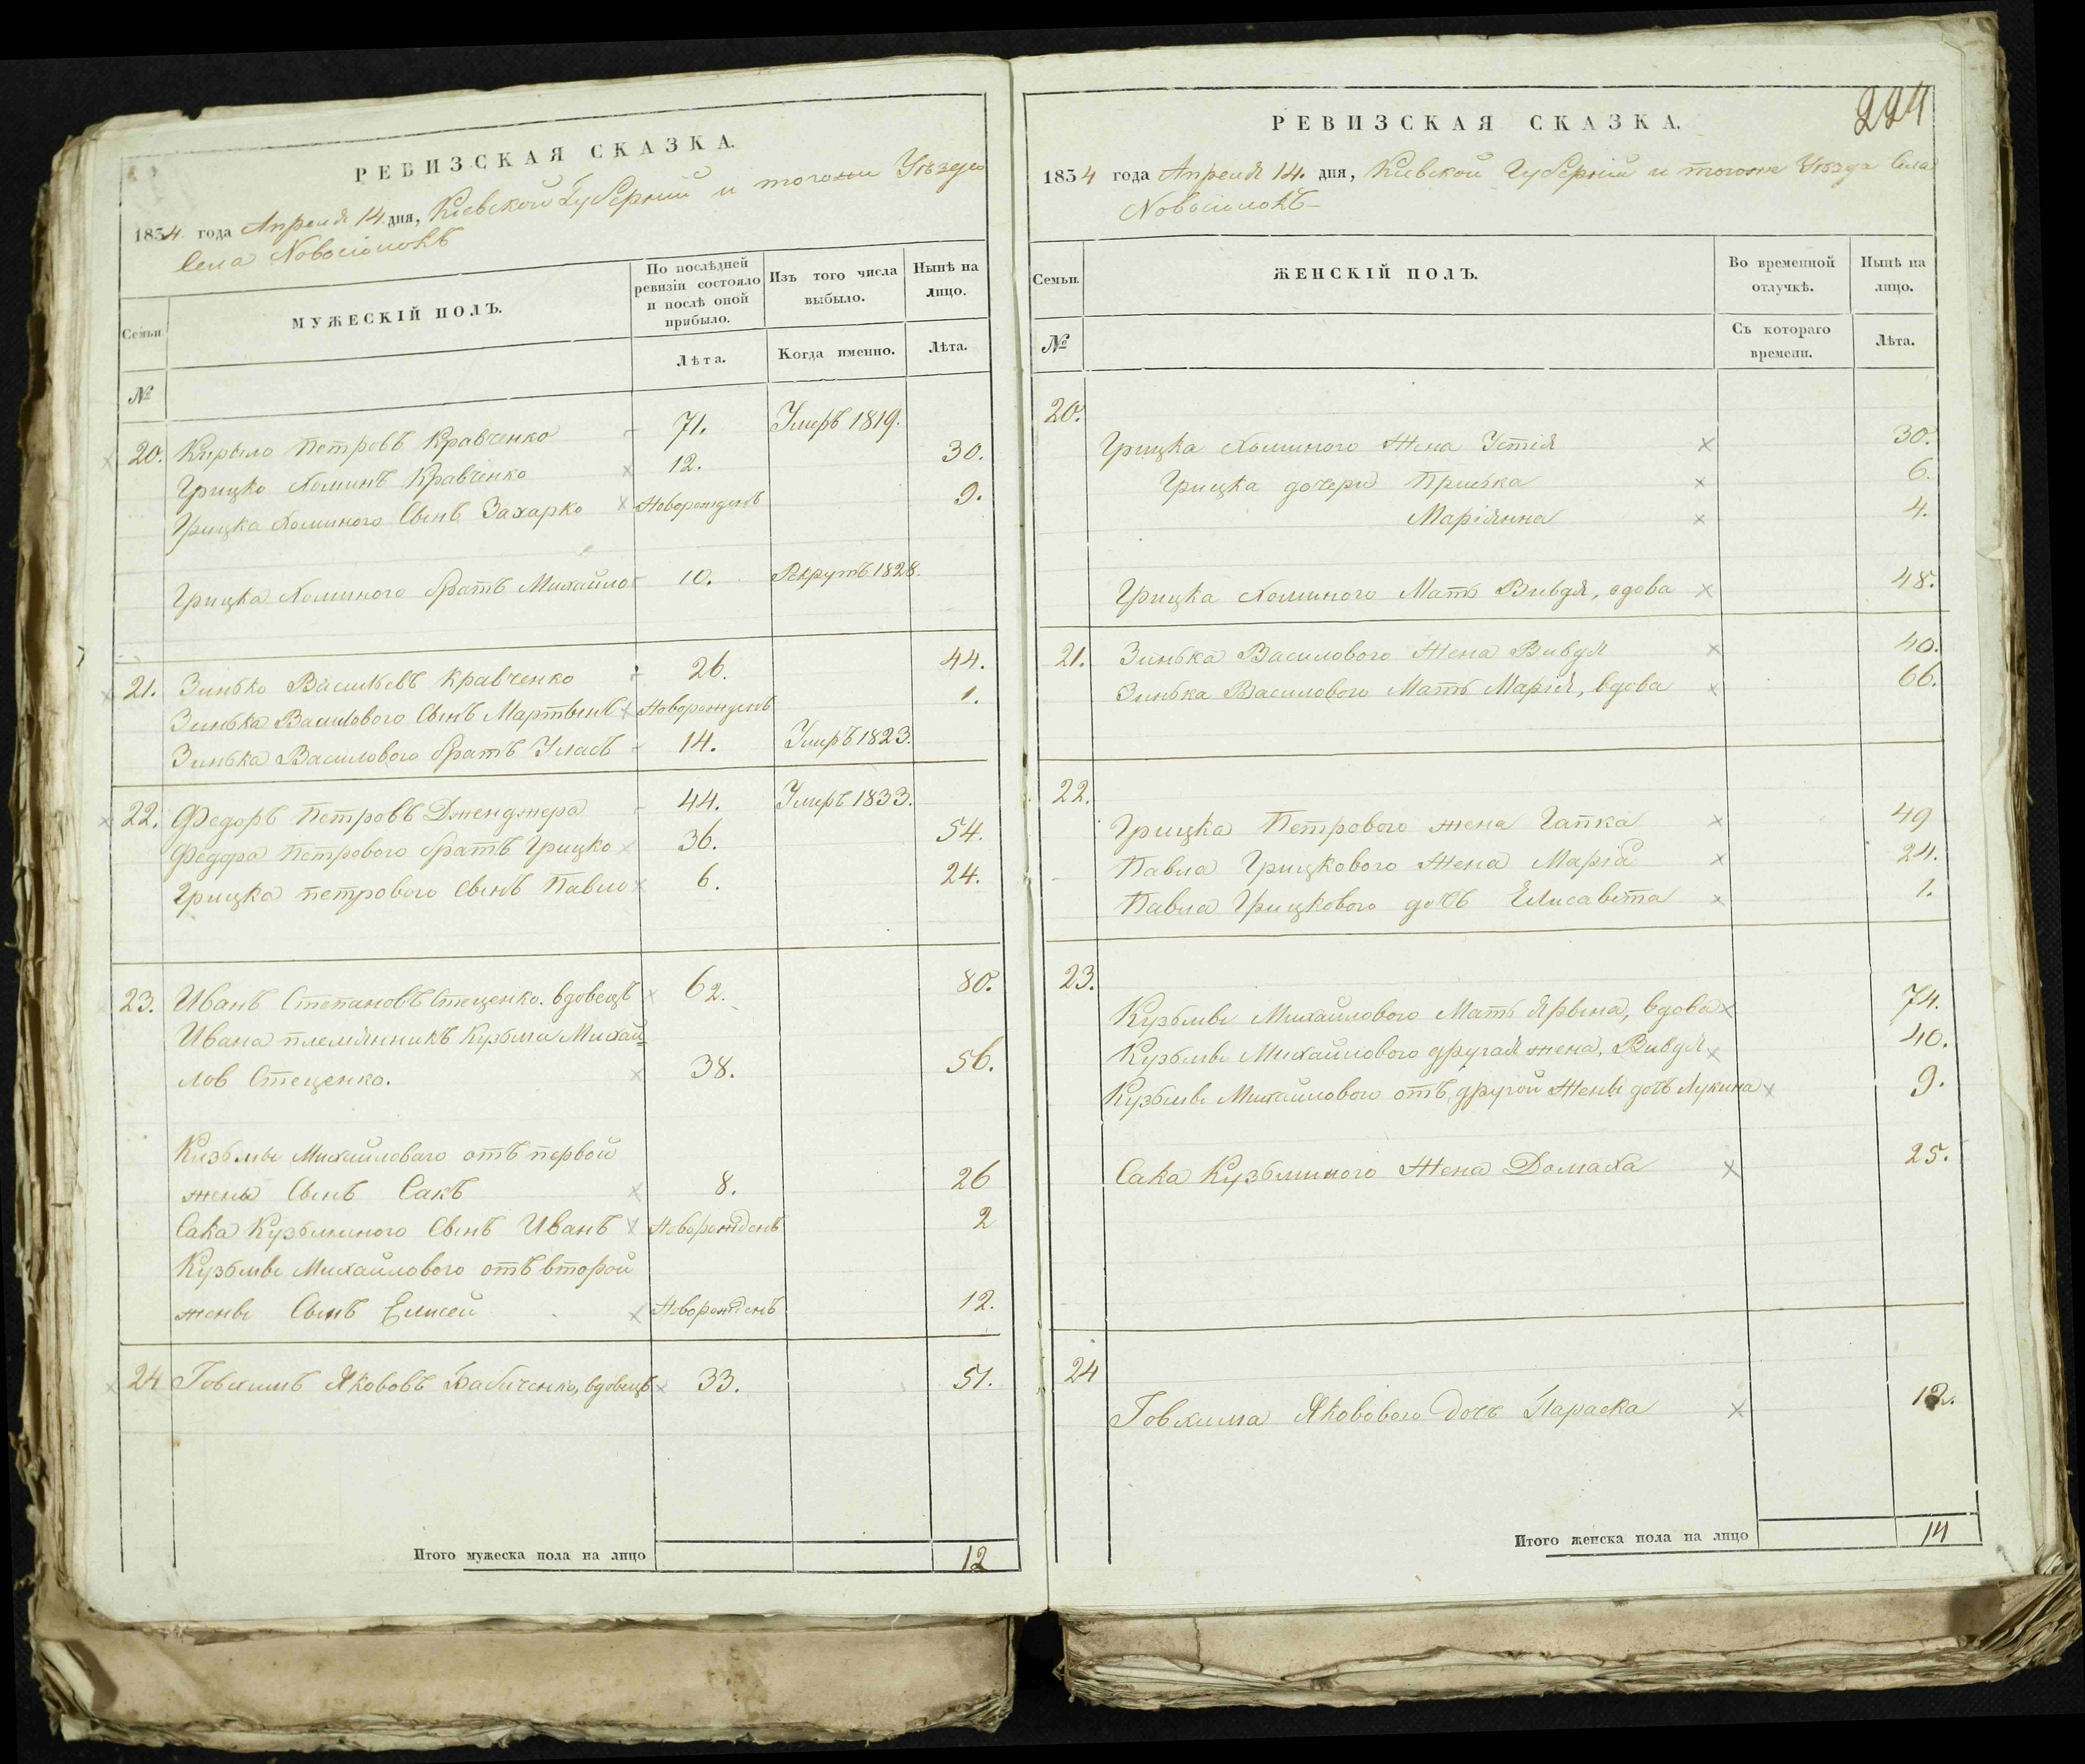 РЕВИЗСКАЯ СКАЗКА.
1834 года Апреля 14 дня, Кіевской Губерніи и тогоже Уезда
Села Новосіолокъ
Семьи
МУЖЕСКІЙ ПОЛЪ.
По послѣдней ревизіи состояло и послѣ оной прибыло.
Изъ того числа выбыло.
Нынѣ на лицо.
№
Лѣта.
Когда именно.
Лѣта.
20. Кирыло Петровъ Кравченко 71. Умеръ 1819.
Грицко Хоминъ Кравченко 12. 30.
Грицка Хоминого Сынъ Захарко Новорожденъ 9.
Грицка Хоминого братъ Михайло 10. Рекрутъ 1828.
21. Зинько Васильевъ Кравченко 26. 44.
Зинька Василового Сынъ Мартынъ Новорожденъ 1.
Зинька Василового братъ Уласъ 14. Умеръ 1823.
22. Федоръ Петровъ Дженджера 44. Умеръ 1833.
Федора Петрового братъ Грицко 36. 54.
Грицка петрового сынъ Павло 6. 24.
23. Иванъ Степановъ Стеценко. вдовецъ 62. 80.
Ивана племянникъ Кузьма Михай
лов Стеценко. 38. 56.
Кузьмы Михайловаго отъ первой
жены Сынъ Сакъ 8. 26
Сака Кузьминого Сынъ Иванъ Новорожденъ 2
Кузьмы Михайлового отъ второй
жены Сынъ Елисей Новорожденъ 12.
24 Говхимъ Яковов Бабиченко, вдовецъ 33. 51.
Итого мужеска пола на лицо 12
224
РЕВИЗСКАЯ СКАЗКА.
1834 года Апреля 14. дня, Кіевской Губерніи и тогоже Уезда Села
Новосіолокъ
Семьи
ЖЕНСКІЙ ПОЛЪ.
Во временной отлучкѣ.
Нынѣ на лицо.
№
Съ котораго времени.
Лѣта.
20.
Грицка Хоминого Жена Устія 30.
Грицка дочери Приська 6.
Маріянна 4.
Грицка Хоминого Мать Вивдя, вдова 48.
21. Зинька Василового Жена Вивдя 40.
Зинька Василового Мать Марія, вдова 66.
22.
Грицка Петрового жена Гапка 49
Павла Грицкового Жена Марія 24.
Павла Грицкового дочь Елисавета 1.
23.
Кузьмы Михайлового Мать Ярына, вдова 74.
Кузьмы Михайлового другая жена, Вивдя 40.
Кузьмы Михайлового отъ другой Жены дочь Лукина 9.
Сака Кузьминого Жена Домаха 25.
24
Говхима Яковового Дочь Параска 12.
Итого женска пола на лицо 14